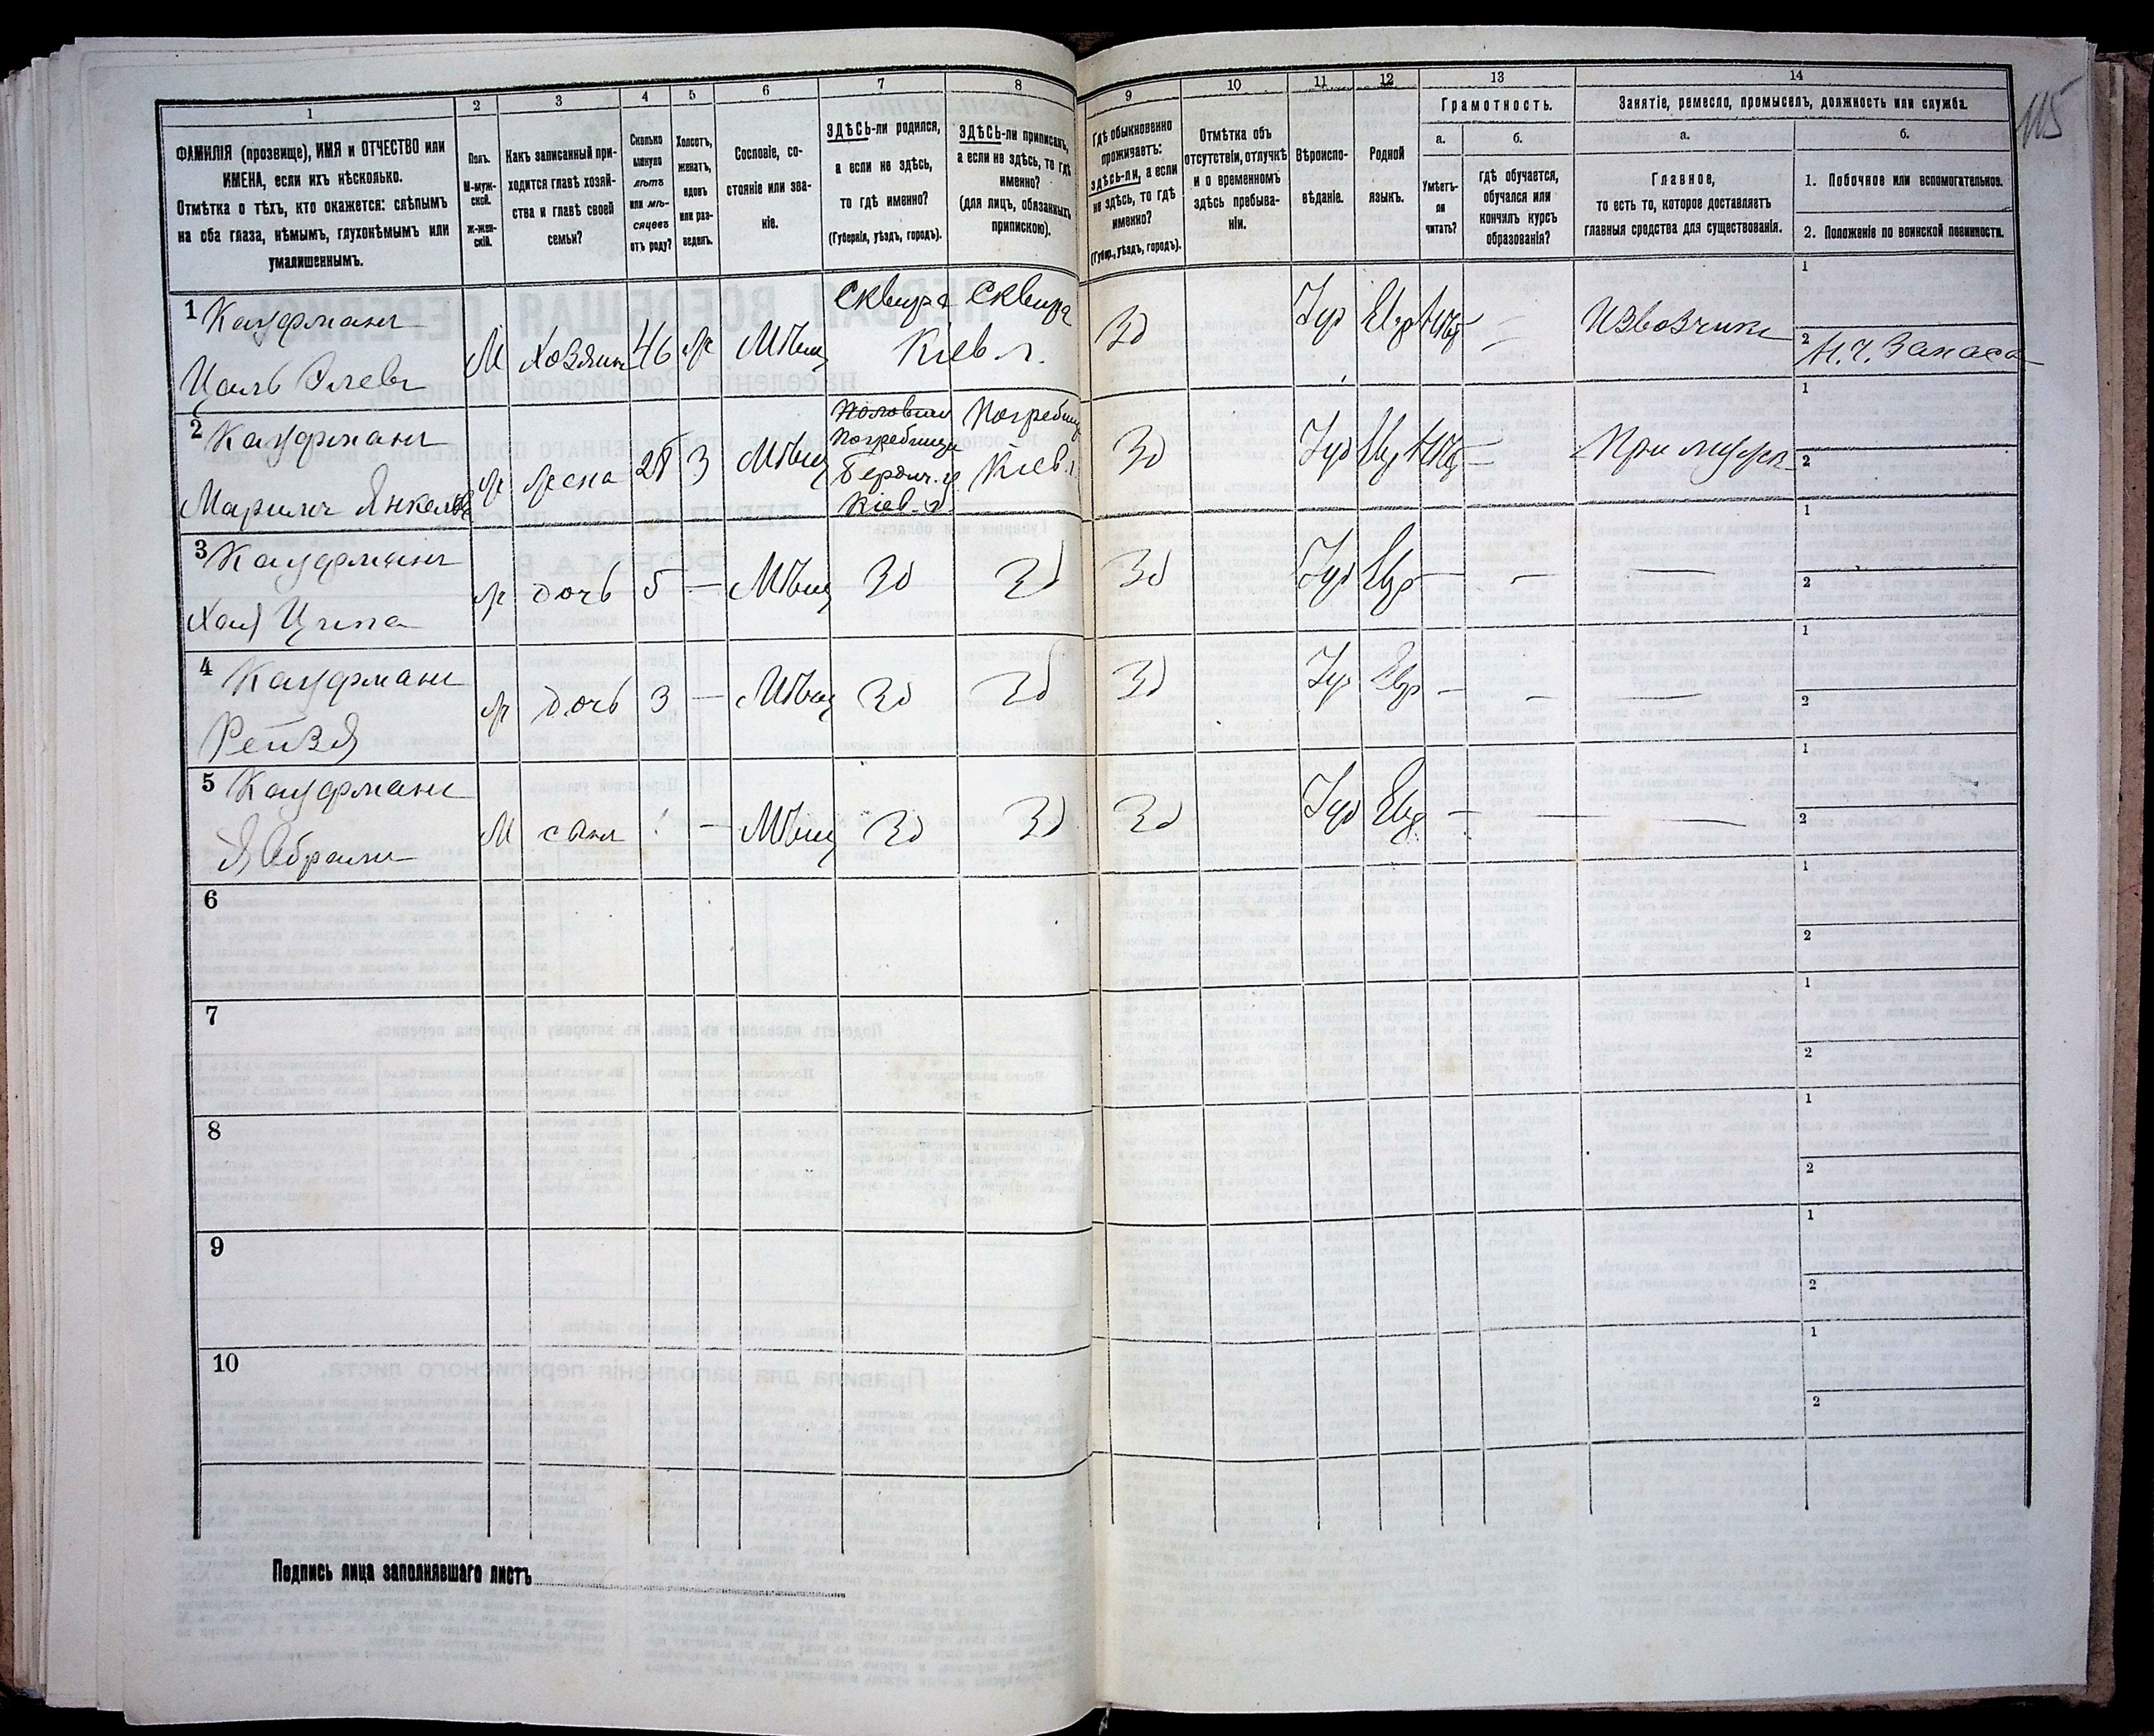 115
1
2
3
4
5
6
7
8
9
10
11
12
13
14
ФАМИЛІЯ (прозвище), ИМЯ и ОТЧЕСТВО или
ИМЕНА, если ихъ нѣсколько.
Отмѣтка о тѣхъ, кто окажется: слѣпымъ
на оба глаза, нѣмымъ, глухонѣмымъ или
умалишеннымъ.
Полъ.
М-муж-
ской.
Ж-жен-
скій.
Какъ записанный при-
ходится главѣ хозяй-
ства и главѣ своей
семьи?
Сколько
минуло
лѣтъ
или мѣ-
сяцевъ
отъ роду?
Холостъ,
женатъ,
вдовъ
или раз-
веденъ.
Сословіе, со-
стояніе или зва-
ніе.
ЗДѢСЬ-ли родился,
а если не здѣсь,
то гдѣ именно?
(Губернія, уѣздъ, городъ).
ЗДѢСЬ-ли приписанъ,
а если не здѣсь, то гдѣ
именно?
(для лицъ, обязанныхъ
припискою).
Гдѣ обыкновенно
проживаетъ:
здѣсь-ли, а если
не здѣсь, то гдѣ
именно?
(Губер., уѣздъ, городъ).
Отмѣтка объ
отсутствіи, отлучкѣ
и о временномъ
здѣсь пребыва-
ніи.
Вѣроиспо-
вѣданіе.
Родной
языкъ.
Грамотность.
а.
б.
Умѣетъ-
ли
читать?
гдѣ обучается,
обучался или
кончилъ курсъ
образованія?
Занятіе, ремесло, промыселъ, должность или служба.
а.
б.
Главное,
то есть то, которое доставляетъ
главныя средства для существованія.
1. Побочное или вспомогательное.
2. Положеніе по воинской повинности.
1 Кауфманъ
М Хозяин 46 ж Мѣщ
Сквира Сквира
Кіев. г.
Зд Іуд Евр
Извозчикъ
1
2
Запаса
2 Кауфманъ
ж жена 28 З Мѣщ
Погребище
Бердич. у.
Кіев. г.
Погребищ
Кіев. г.
Зд Іуд Евр —
При мужѣ
1
2
3 Кауфманъ
Хая Ципа
ж дочь 5 — Мѣщ Зд Зд Зд Іуд Евр — — —
1
2
4 Кауфманъ
Рейзя
ж дочь 3 — Мѣщ Зд Зд Зд Іуд Евр — — —
1
2
5 Кауфманъ
М сынъ — Мѣщ Зд Зд Зд Іуд Евр — —
1
2
6
1
2
7
1
2
8
1
2
9
1
2
10
1
2
Подпись лица заполнявшаго листъ